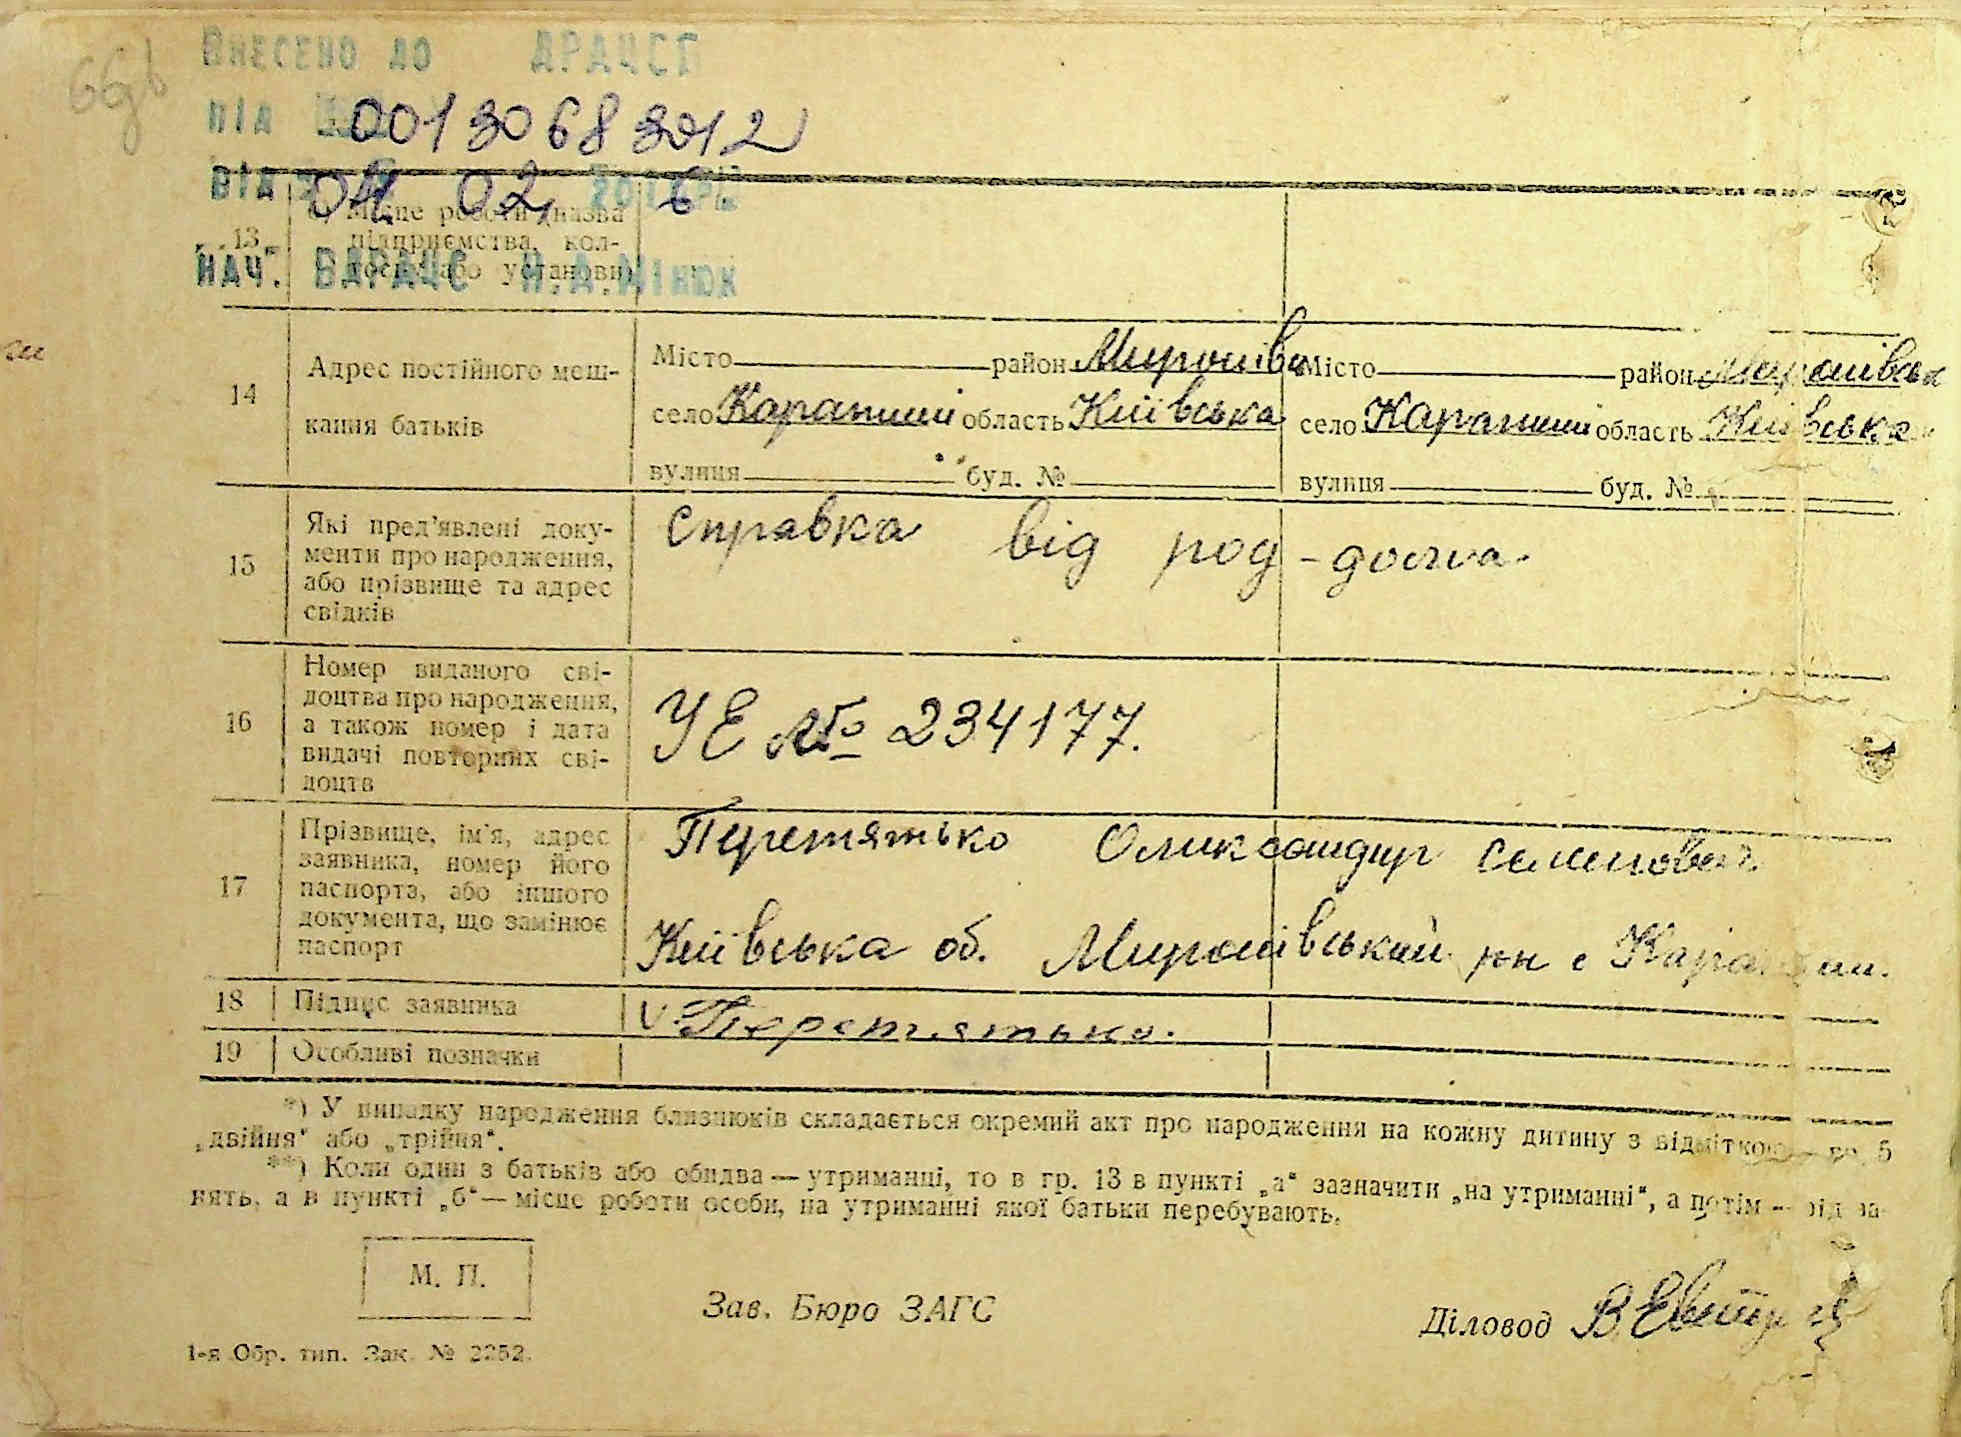 Внесено до ДРАЦСГ
під 00130683012
від 04 02, 2016 р.
Нач. ВДРАЦС Н.А.Мінюк
13
б) Місце роботи (назва
підприємства, кол-
госпу або установи)
14
Адрес постійного меш-
кання батьків
Місто район Миронівс Місто район Миронівськ
село Карапиші область Київська село Карапиші область Київська
вулиця буд. № вулиця буд. №
15
Які пред'явлені доку-
менти про народження,
або прізвище та адрес
свідків
Справка від род-дома.
16
Номер виданого сві-
доцтва про народження,
а також номер і дата
видачі повторних сві-
доцтв
УЕ № 234177.
17
Прізвище, ім'я, адрес
заявника, номер його
паспорта, або іншого
документа, що замінює
паспорт
Перетятько Олександр Семенович
Київська об. Миронівський рн с
18 Підпис заявника
V Перетятько.
19 Особливі позначки
*) У випадку народження близнюків складається окремий акт про народження на кожну дитину з відміткою 5
„двійня" або „трійня".
**) Коли один з батьків або обидва — утриманці, то в гр. 13 в пункті „а" зазначити „на утриманні", а потім — рід за-
нять, а в пункті „б" — місце роботи особи, на утриманні якої батьки перебувають.
М. П.
Зав. Бюро ЗАГС
Діловод
1-я Обр. тип. Зак. № 2252.